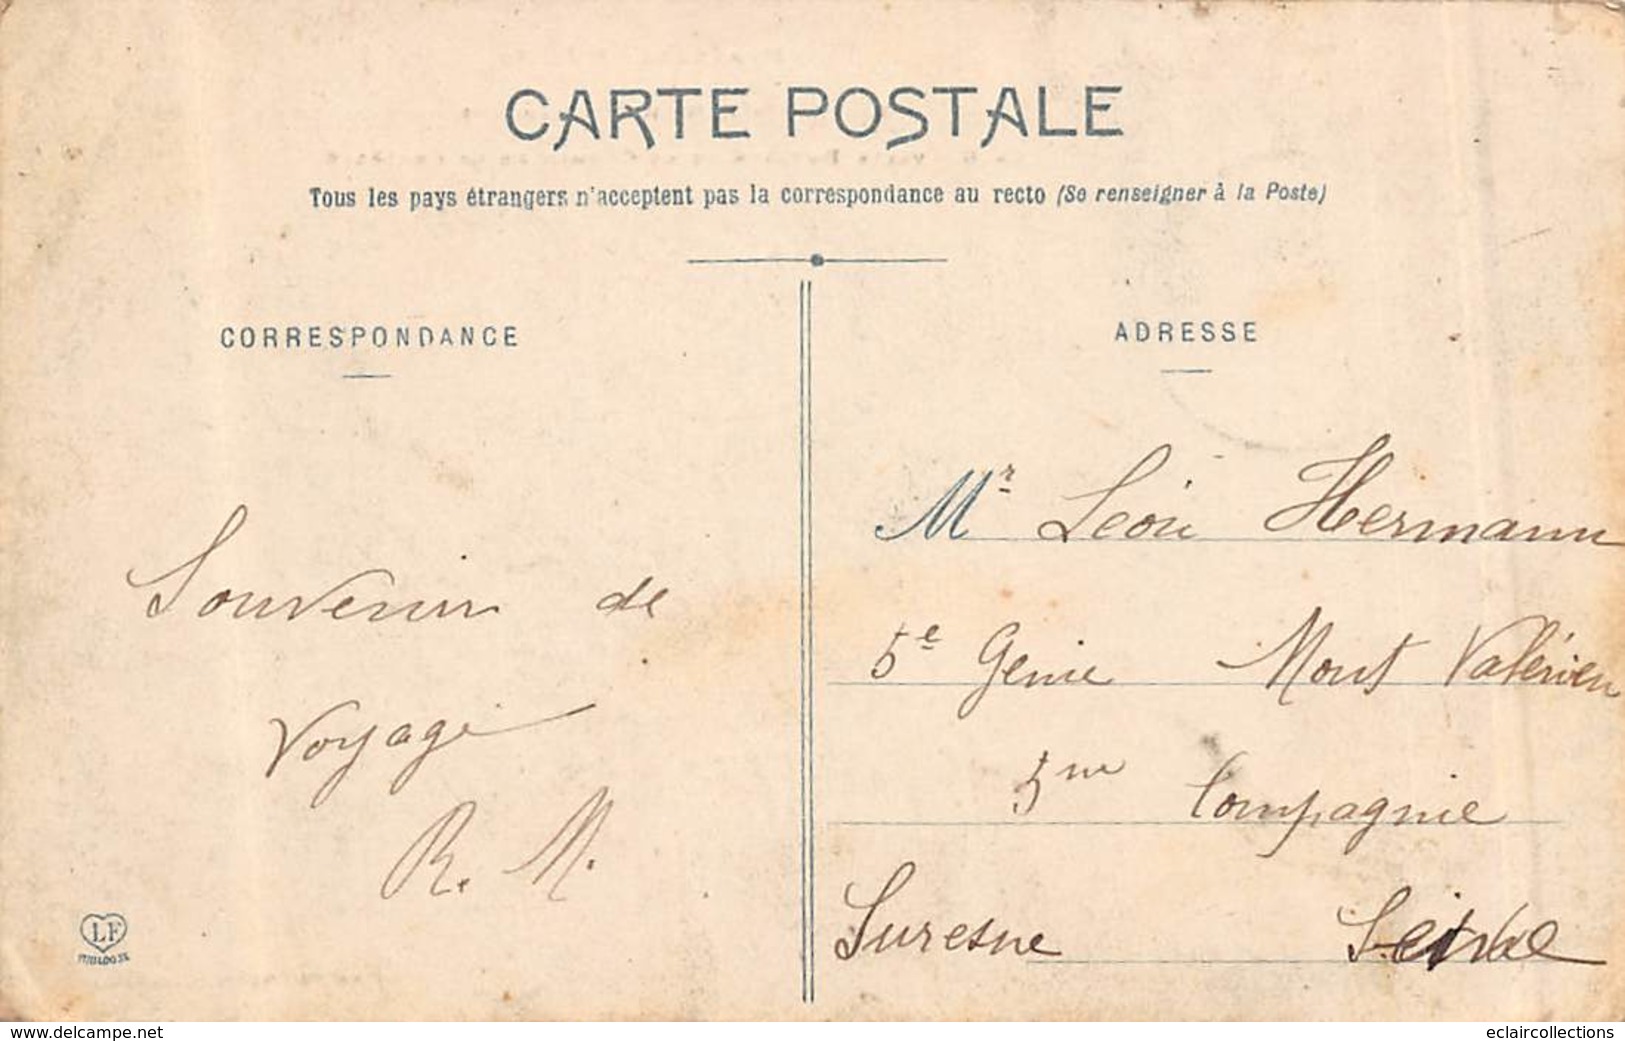 CARTE POSTALE
Tous les pays étrangers n'acceptent pas la correspondance au recto (Se renseigner à la Poste)
CORRESPONDANCE
ADRESSE
Souvenir de
Voyage
R. M.
Mr Léon Hermann
5e Genie Mont Valérien
5me Compagnie
Suresne Seine
LF
TOULOUSE
www.delcampe.net
eclaircollections